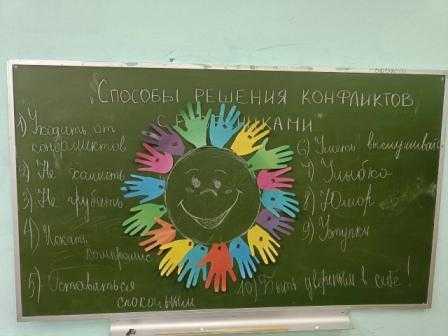 "СПОСОБЫ РЕШЕНИЯ КОНФЛИКТОВ
С
1) Уходить от
конфликтов
2) Не хамить
3) Не грубить
4) Искать
компромис
5) Оставаться
спокойным
6) Уметь
7) Улыбка
8) Юмор
9) Уступки
10) Быть уверенным в себе!